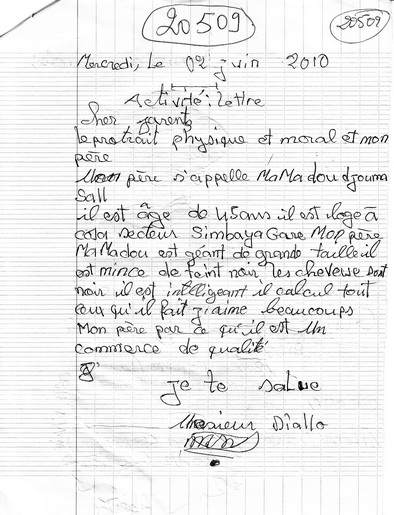 20509
20509
Mercredi, Le 02 juin 2010
Activité : lettre
Cher parents
le protrait physique et moral et mon
père
Mon père s'appelle MaMadou djouma
Sall
il est âge de 45 ans il est loge à
cosa secteur Simbaya Gare Mop père
MaMadou est géant de grande taille il
est mince de teint noir les cheveuse sont
noir il est intelligeant il calcul tout
ceux qu'il fait j'iaime beaucoups
Mon père par ce qu'il est Un
commerce de qualité
je te salue
Monsieur Diallo